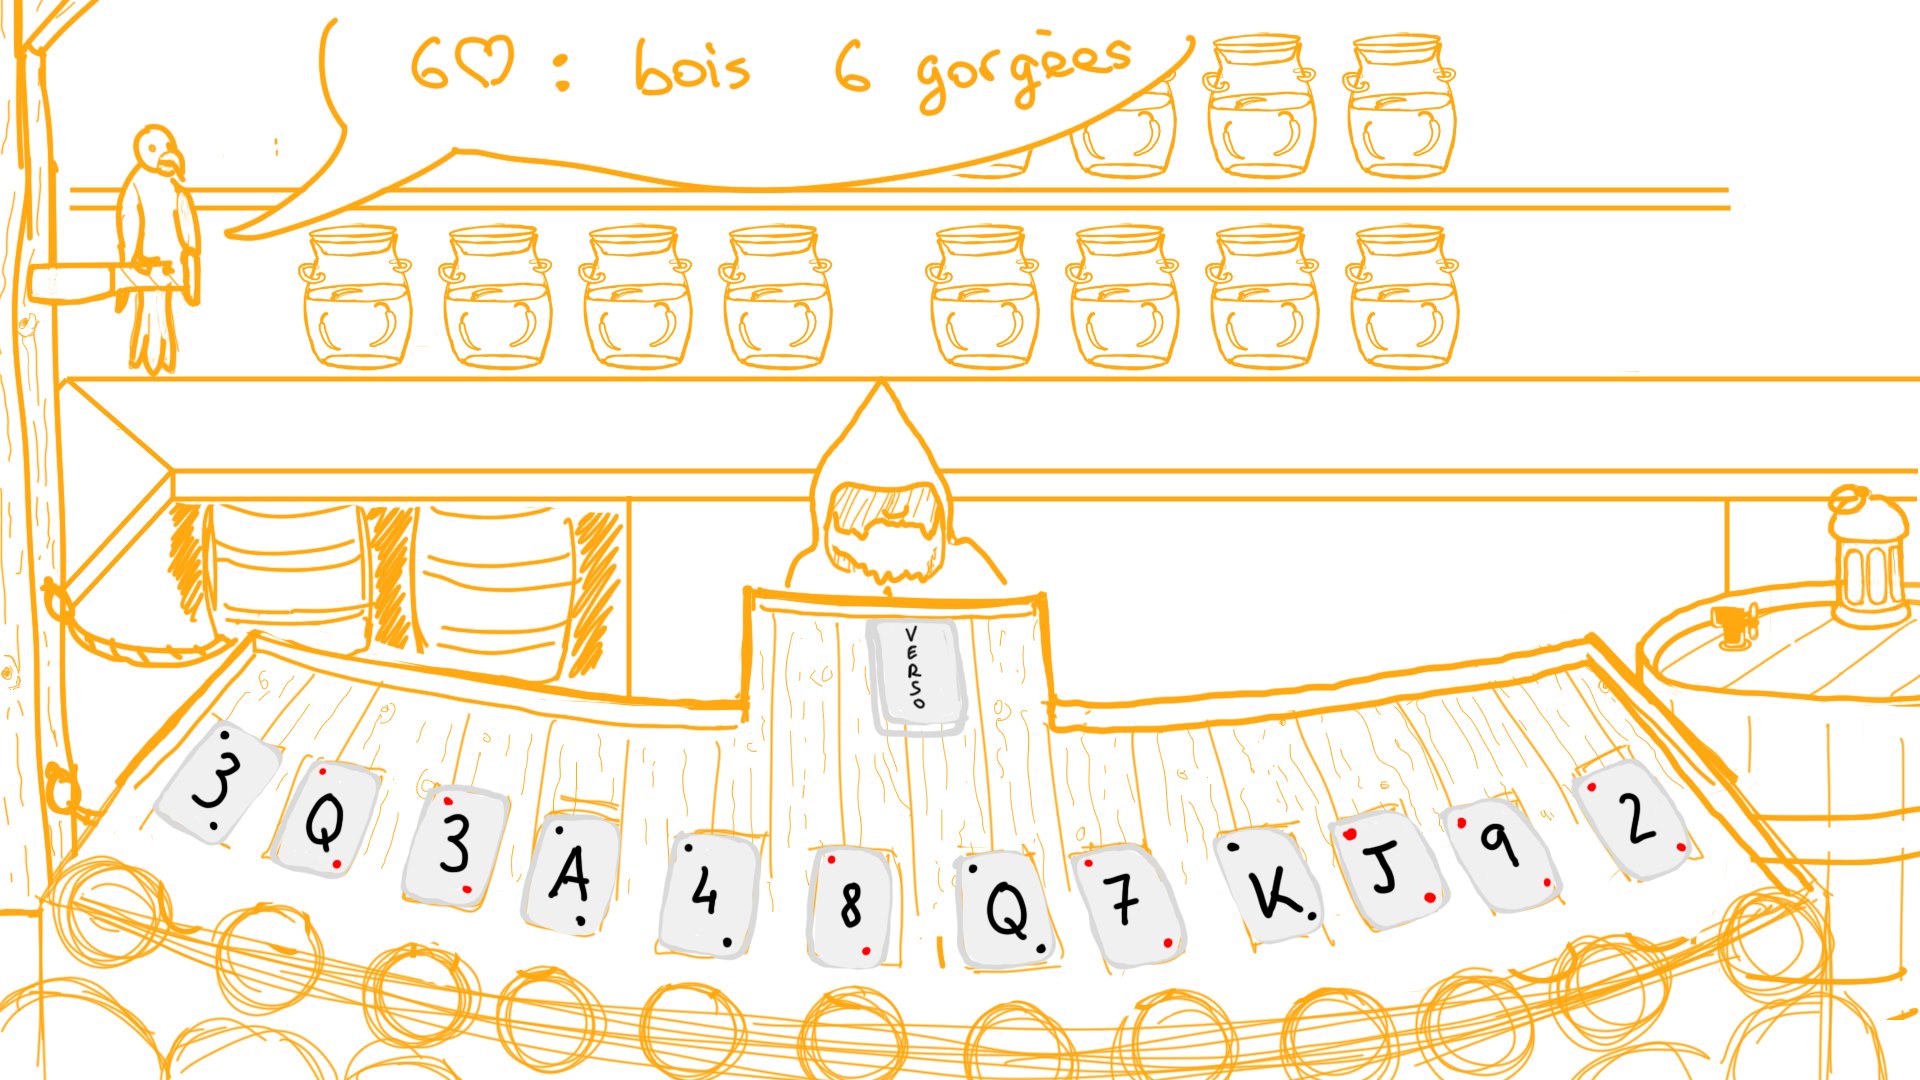 6♡ : bois 6 gorgées
VERSO
3
Q
3
A
4
8
Q
7
K
J
9
2